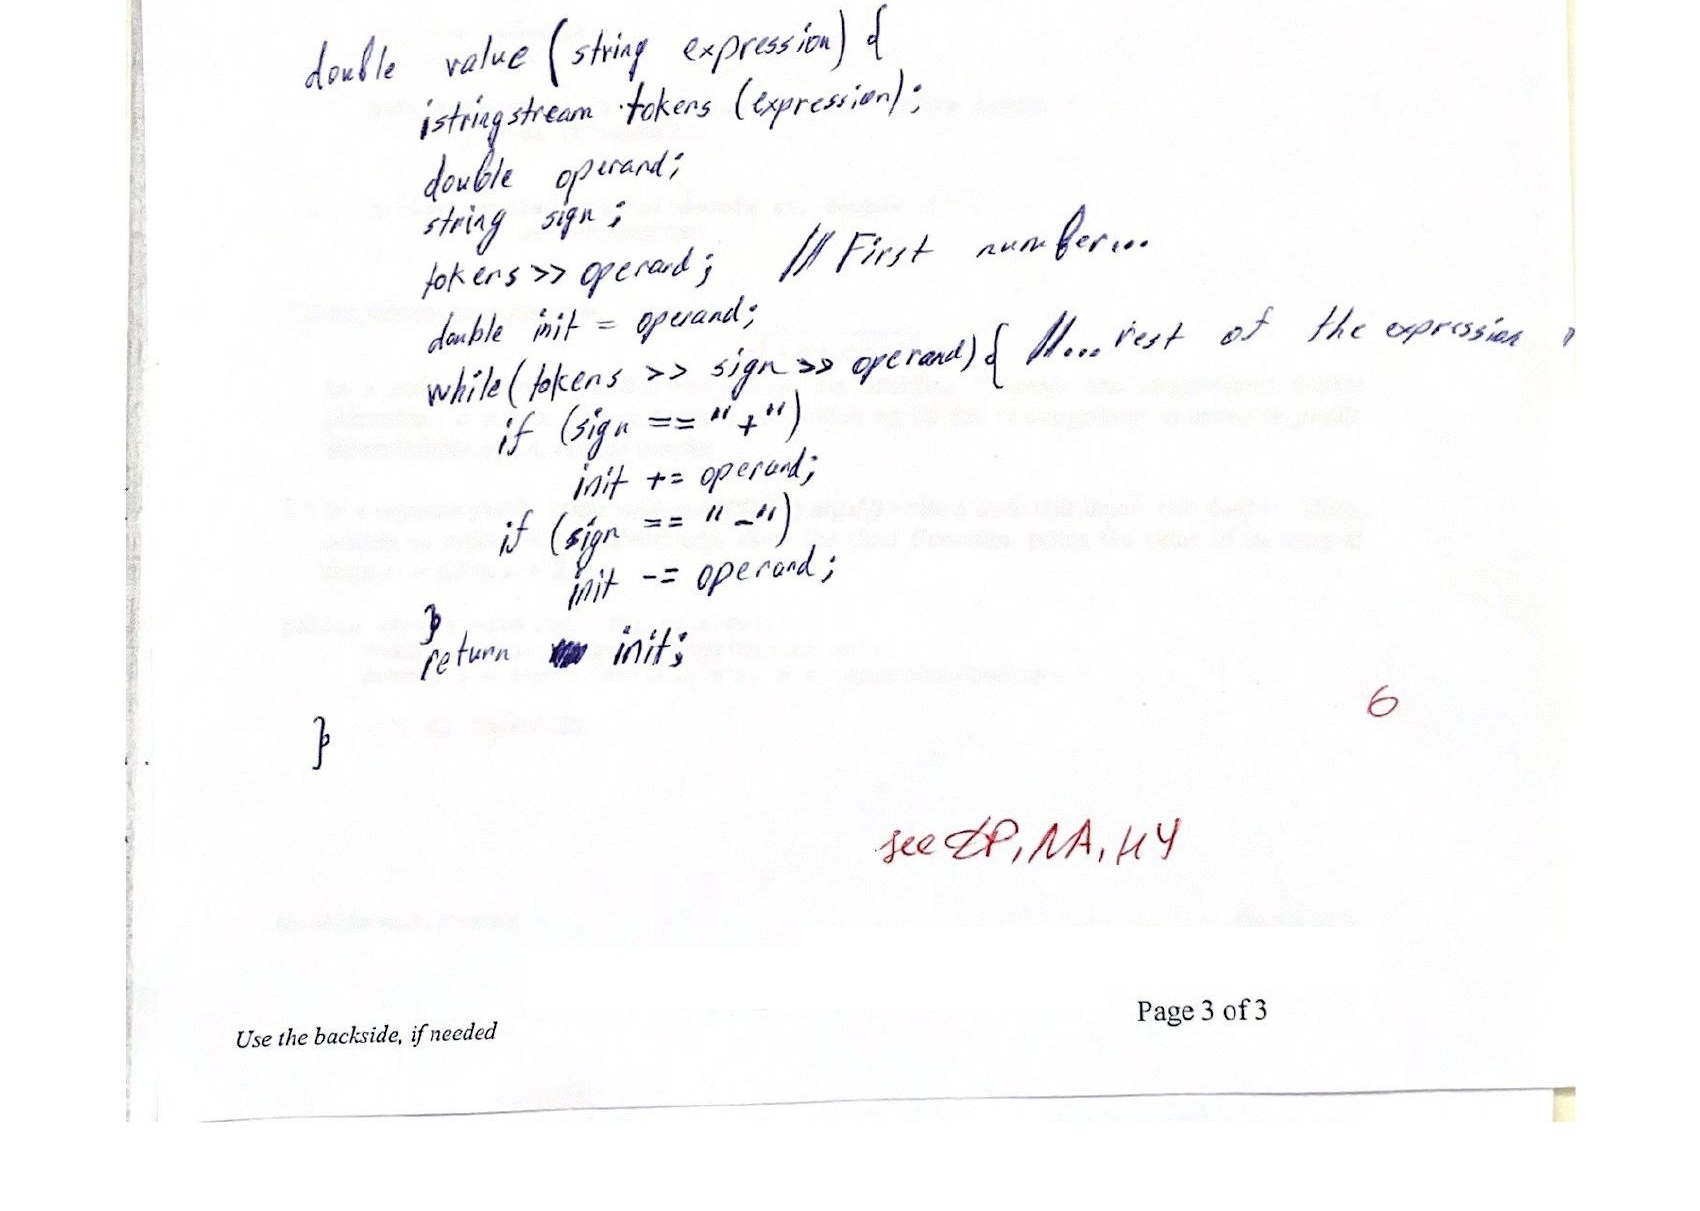 double value (string expression) {
istringstream tokens (expression);
double operand;
string sign;
tokens >> operand; // First number...
double init = operand;
while (tokens >> sign >> operand) { // ... rest of the expression
if (sign == "+")
init += operand;
if (sign == "-")
init -= operand;
}
return init;
}
6
see
Use the backside, if needed
Page 3 of 3